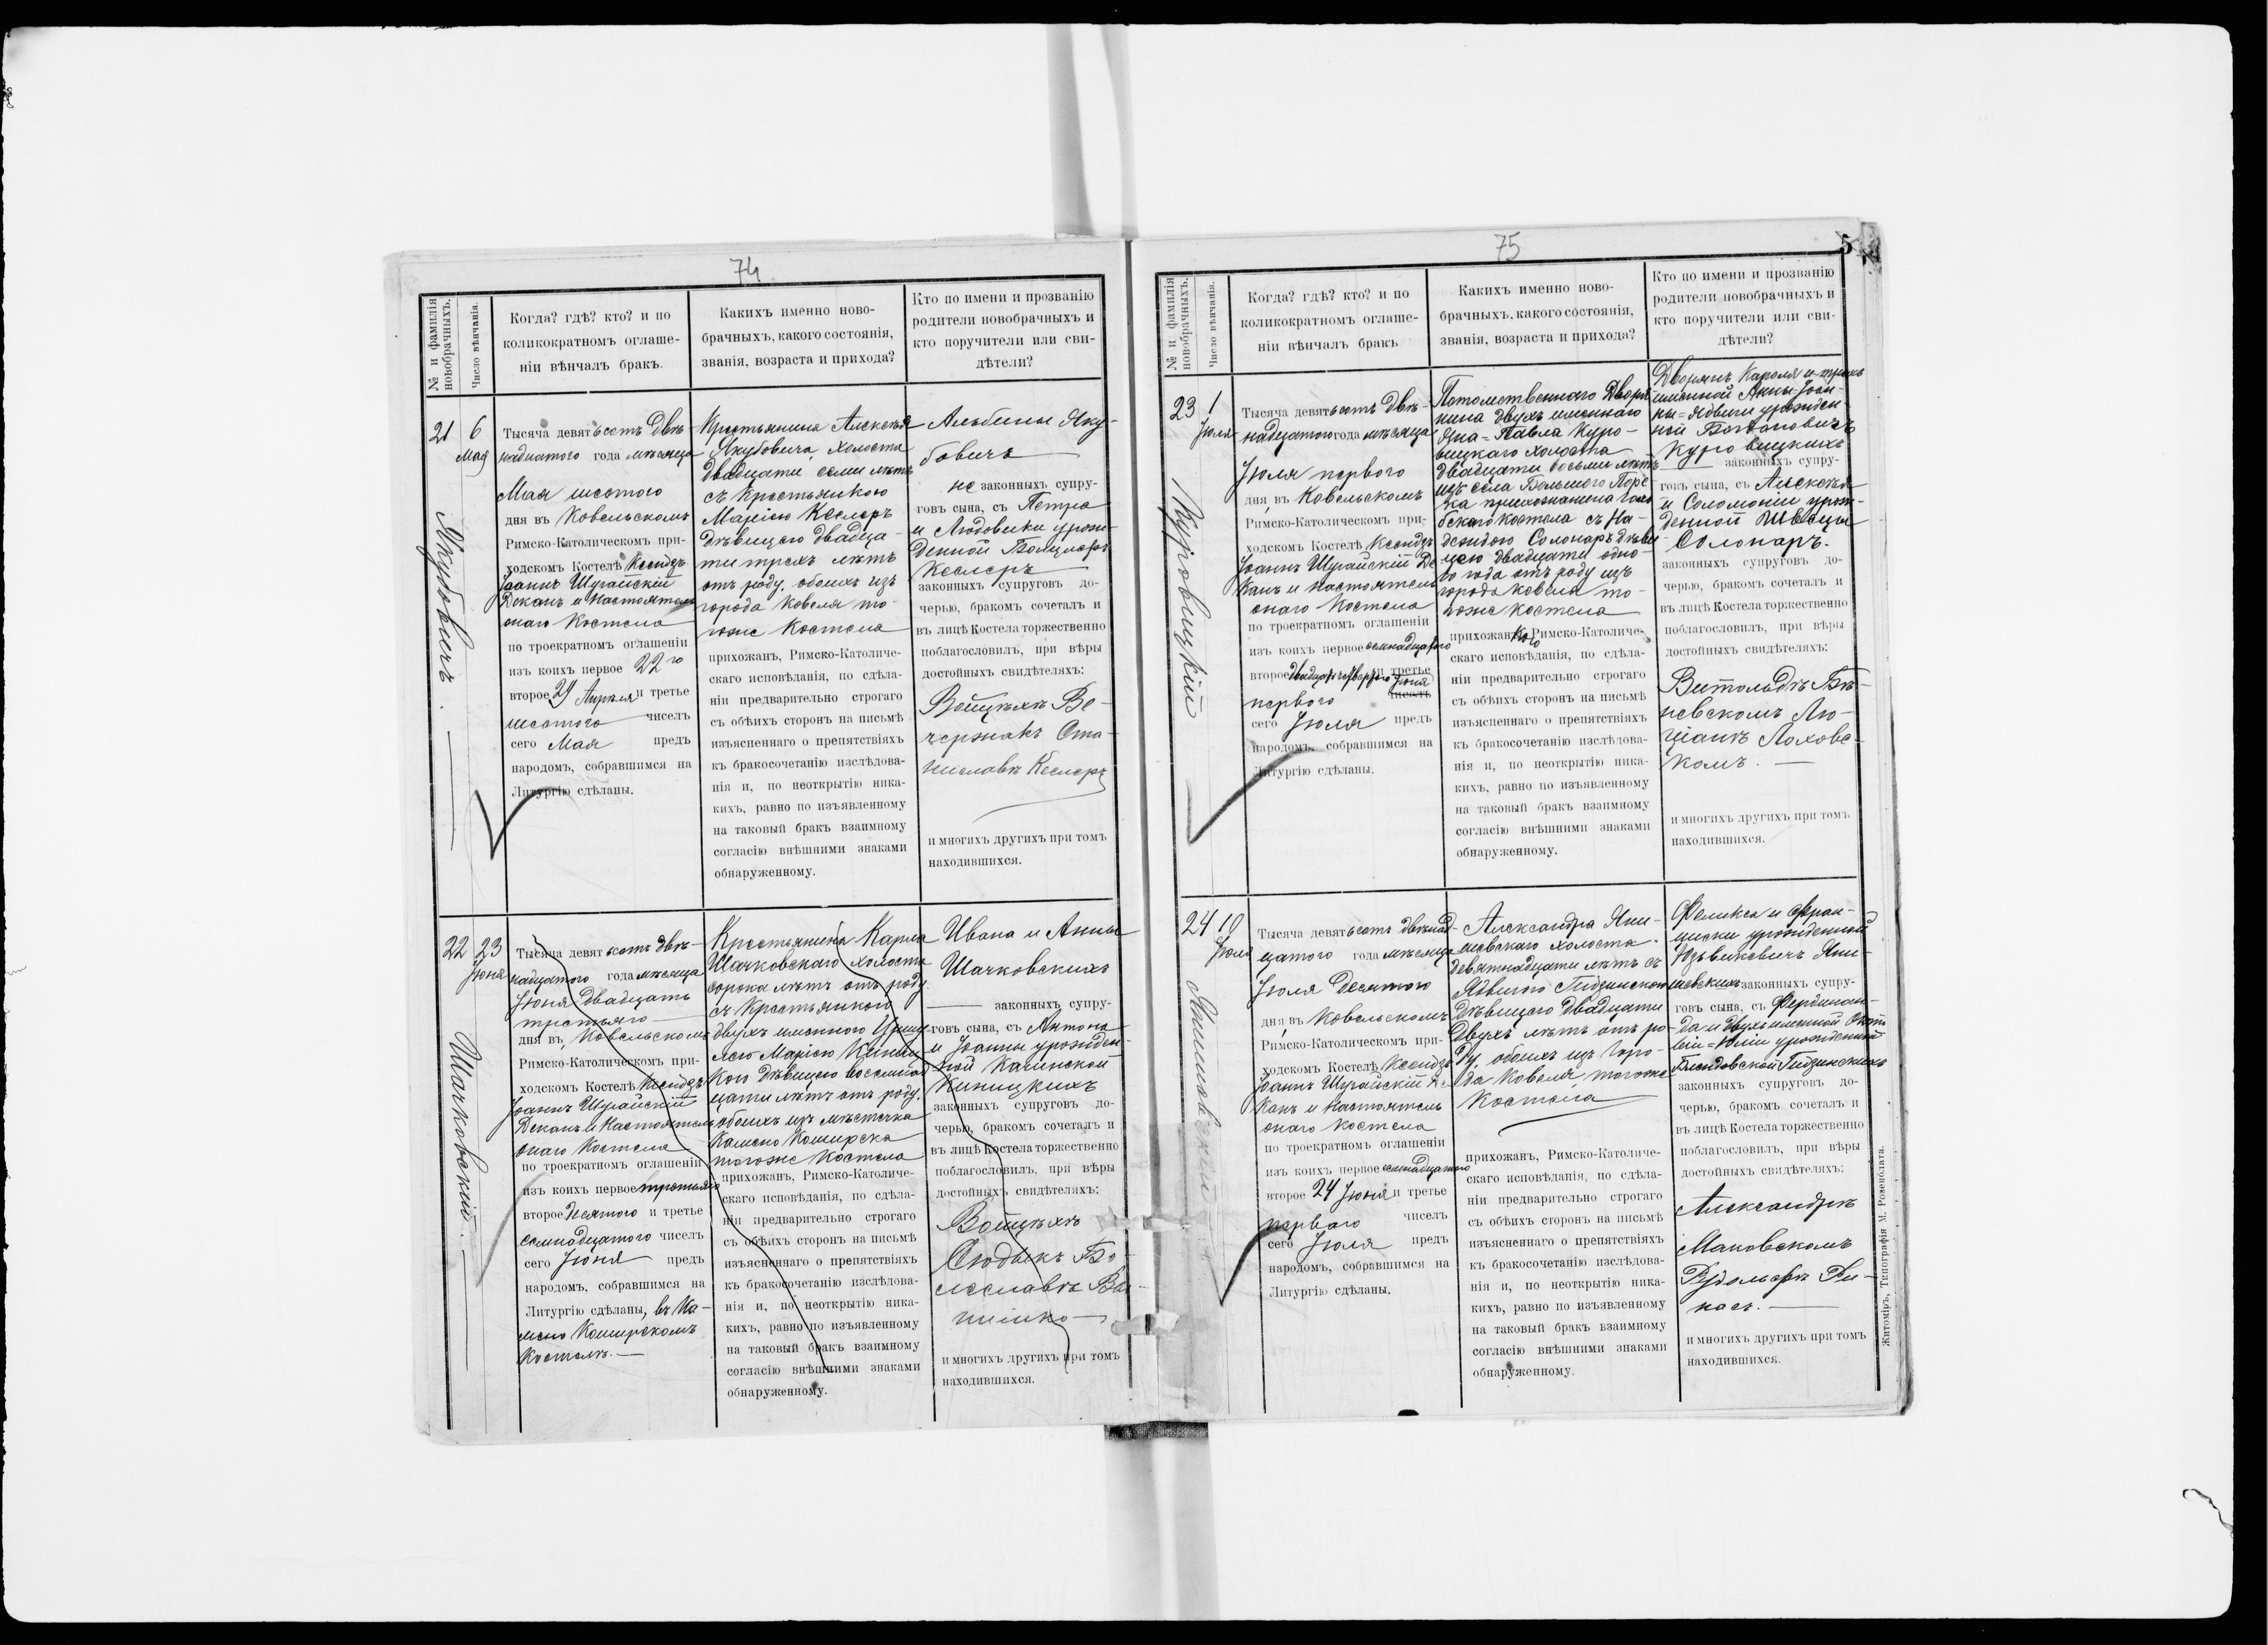 74
№ и фамилія
новобрачныхъ.
Число вѣнчанія.
Когда? гдѣ? кто? и по
коликократномъ оглаше-
ніи вѣнчалъ бракъ.
Какихъ именно ново-
брачныхъ, какого состоянія,
званія, возраста и прихода?
Кто по имени и прозванію
родители новобрачныхъ и
кто поручители или сви-
дѣтели?
21
6
Мая
Якубовичъ.
Тысяча девятьсотъ двѣ-
надцатого года мѣсяца
Мая шестого
дня въ Ковельскомъ
Римско-Католическомъ при-
ходскомъ Костелѣ Ксендзъ
Іоаннъ Шурайскій
Деканъ и Настоятель
онаго Костела
по троекратномъ оглашеніи
изъ коихъ первое 22го
второе 29 Апрѣля и третье
шестого чиселъ
сего Мая предъ
народомъ, собравшимся на
Литургію сдѣланы.
Крестьянина Алексѣя
Якубовича, холоста
двадцати семи лѣтъ
съ Крестьянкою
Маріею Кеслеръ
дѣвицею двадца-
ти трехъ лѣтъ
отъ роду, обоихъ изъ
города Ковеля то-
гоже Костела
прихожанъ, Римско-Католиче-
скаго исповѣданія, по сдѣла-
ніи предварительно строгаго
съ обѣихъ сторонъ на письмѣ
изъясненнаго о препятствіяхъ
къ бракосочетанію изслѣдова-
нія и, по неоткрытію ника-
кихъ, равно по изъявленному
на таковый бракъ взаимному
согласію внѣшними знаками
обнаруженному.
Альбины Яку-
бовичъ
не законныхъ супру-
говъ сына, съ Петра
и Людовики урож-
денной
Кеслеръ
законныхъ супруговъ до-
черью, бракомъ сочеталъ и
въ лицѣ Костела торжественно
поблагословилъ, при вѣры
достойныхъ свидѣтеляхъ:
Войцѣхѣ Ве-
чержакъ Ста-
ниславѣ Кеслеръ
и многихъ другихъ при томъ
находившихся.
22
23
Юня
Шачковскій.
Тысяча девятьсотъ двѣ-
надцатого года мѣсяца
Юня двадцать
третьяго
дня въ Ковельскомъ
Римско-Католическомъ при-
ходскомъ Костелѣ Ксендзъ
Іоаннъ Шурайскій
Деканъ и Настоятель
онаго Костела
по троекратномъ оглашеніи
изъ коихъ первое третьяго
второе Десятого и третье
семнадцатого чиселъ
сего Юня предъ
народомъ, собравшимся на
Литургію сдѣланы, въ Ка-
мено Коширскомъ
Костелѣ.
Крестьянина Карла
Шачковскаго холоста
сорока лѣтъ отъ роду
съ Крестьянкою
двухъ именною Уршу-
лею Маріею Киниц-
кою дѣвицею восемнад-
цати лѣтъ отъ роду,
обоихъ изъ мѣстечка
Камено Коширска
тогоже Костела
прихожанъ, Римско-Католиче-
скаго исповѣданія, по сдѣла-
ніи предварительно строгаго
съ обѣихъ сторонъ на письмѣ
изъясненнаго о препятствіяхъ
къ бракосочетанію изслѣдова-
нія и, по неоткрытію ника-
кихъ, равно по изъявленному
на таковый бракъ взаимному
согласію внѣшними знаками
обнаруженному.
Ивана и Анны
Шачковскихъ
законныхъ супру-
говъ сына, съ Антона
и Іоанны урожден-
ной Качинской
Киницкихъ
законныхъ супруговъ до-
черью, бракомъ сочеталъ и
въ лицѣ Костела торжественно
поблагословилъ, при вѣры
достойныхъ свидѣтеляхъ:
Войцѣхѣ
Бо-
леславѣ
и многихъ другихъ при томъ
находившихся.
75
5
№ и фамилія
новобрачныхъ.
Число вѣнчанія.
Когда? гдѣ? кто? и по
коликократномъ оглаше-
ніи вѣнчалъ бракъ
Какихъ именно ново-
брачныхъ, какого состоянія,
званія, возраста и прихода?
Кто по имени и прозванію
родители новобрачныхъ и
кто поручители или сви-
дѣтели?
23
1
Юля
Куровицкій
Тысяча девятьсотъ двѣ-
надцатого года мѣсяца
Юля первого
дня въ Ковельскомъ
Римско-Католическомъ при-
ходскомъ Костелѣ Ксендзъ
Іоаннъ Шурайскій Де-
канъ и настоятель
онаго Костела
по троекратномъ оглашеніи
изъ коихъ первое семнадцатого
второе двадцать четвертого Юня и третье
первого чиселъ
сего Юля предъ
народомъ, собравшимся на
Литургію сдѣланы.
Потомственнаго Дворя-
нина двухъ именнаго
Яна=Павла Куро-
вицкаго холоста
двадцати восьми лѣтъ
изъ села Большого Порс-
ка прихожанина Голо-
бскаго костела съ На-
деждою Солонаръ дѣви-
цею двадцати одно-
го года отъ роду изъ
города Ковеля то-
гоже костела
прихожанкою Римско-Католиче-
скаго исповѣданія, по сдѣла-
ніи предварительно строгаго
съ обѣихъ сторонъ на письмѣ
изъясненнаго о препятствіяхъ
къ бракосочетанію изслѣдова-
нія и, по неоткрытію ника-
кихъ, равно по изъявленному
на таковый бракъ взаимному
согласію внѣшними знаками
обнаруженному.
Дворянъ Кароля и трехъ
именной Анны=Іоан-
ны=Ядвиги урожден-
ной Богдановичъ
Куровицкихъ
законныхъ супру-
говъ сына, съ Алексѣя
и Соломоніи урож-
денной Швецъ
Солонаръ.
законныхъ супруговъ до-
черью, бракомъ сочеталъ и
въ лицѣ Костела торжественно
поблагословилъ, при вѣры
достойныхъ свидѣтеляхъ:
Витольдѣ Бѣ-
невскомъ Лю-
ціанѣ Лоховс-
комъ.
и многихъ другихъ при томъ
находившихся.
24
10
Юля
Янишевскій
Тысяча девятьсотъ двѣнад-
цатого года мѣсяца
Юля Десятого
дня въ Ковельскомъ
Римско-Католическомъ при-
ходскомъ Костелѣ Ксендзъ
Іоаннъ Шурайскій Де-
канъ и Настоятель
онаго Костела
по троекратномъ оглашеніи
изъ коихъ первое семнадцатого
второе 24 Юня и третье
перваго чиселъ
сего Юля предъ
народомъ, собравшимся на
Литургію сдѣланы.
Александра Яни-
шевскаго холоста
девятнадцати лѣтъ съ
Ядвигою Гидзинскою
дѣвицею двадцати
двухъ лѣтъ отъ ро-
ду, обоихъ изъ горо-
да Ковеля, тогоже
Костела
прихожанъ, Римско-Католиче-
скаго исповѣданія, по сдѣла-
ніи предварительно строгаго
съ обѣихъ сторонъ на письмѣ
изъясненнаго о препятствіяхъ
къ бракосочетанію изслѣдова-
нія и, по неоткрытію ника-
кихъ, равно по изъявленному
на таковый бракъ взаимному
согласію внѣшними знаками
обнаруженному.
Феликса и Фран-
циски урожденной
Юзвикевичъ Яни-
шевскихъ законныхъ супру-
говъ сына, съ Фердинан-
да и двухъ именной Окта-
віи=Юліи урожденной
Гидзинскихъ
законныхъ супруговъ до-
черью, бракомъ сочеталъ и
въ лицѣ Костела торжественно
поблагословилъ, при вѣры
достойныхъ свидѣтеляхъ:
Александрѣ
Маковскомъ
Рудольфѣ
и многихъ другихъ при томъ
находившихся.
Житоміръ, Типографія М. Розенблата.